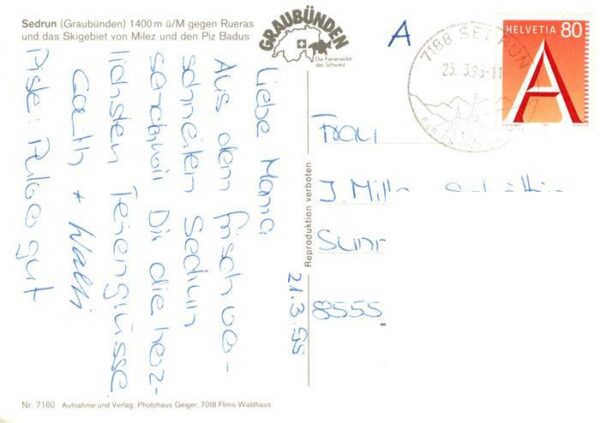 Sedrun (Graubünden) 1400 m ü/M gegen Rueras
und das Skigebiet von Milez und den Piz Badus
GRAUBÜNDEN
Die Ferienecke
der Schweiz
A
7188 SEDRUN
23. 3.95-11
HELVETIA 80
A
Liebe Mama
Aus dem frisch ver-
schneiten Sedrun
senden wir Dir die herz-
lichsten Feriengrüsse.
+ Walti
Piste: Pulver gut
21.3.95
Reproduktion verboten
Frau
J.
8555
Nr. 7160 Aufnahme und Verlag: Photohaus Geiger, 7018 Flims-Waldhaus